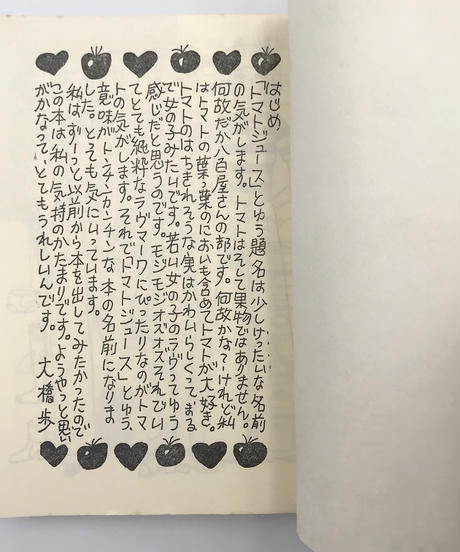 はじめ
「トマトジュース」とゆう題名は少しけったいな名前
の気がします。トマトはそして果物ではありません。
何故だか八百屋さんの部です。何故かな?けれど私
はトマトの葉っ葉のにおいも含めてトマトが大好き。
トマトのはちきれそうな実はかわいらしくってまる
で女の子みたいです。若い女の子のラヴってゆう
感じだと思うのです。モジモジオズオズそれでい
てとても純粋なラヴマークにぴったりなのがトマ
トの気がします。それで「トマトジュース」とゆう、
意味がトンチンカンチンな本の名前になりま
した。とっても気にいっています。
私はずーっと以前から本を出してみたかったので
この本は、私の気持のかたまりです。ようやっと思い
がかなって、とてもうれしいんです。 大橋歩